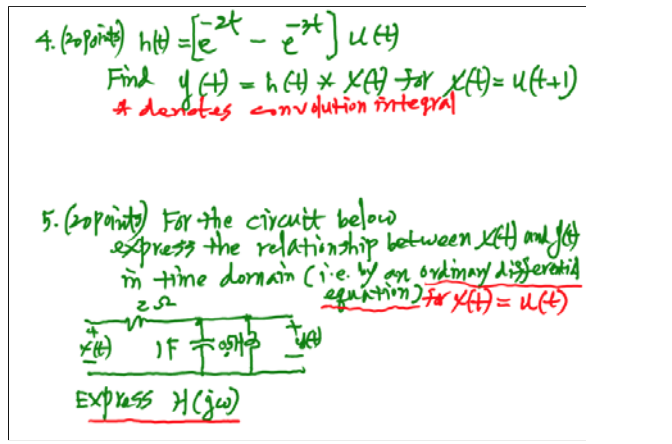 4. (20 points) h(t) = [e^{-2t} - e^{-3t}] u(t)
Find y(t) = h(t) * x(t) for x(t) = u(t+1)
* denotes convolution integral
5. (20 points) For the circuit below
express the relationship between x(t) and y(t)
in time domain (i.e. by an ordinary differential
equation) for x(t) = u(t)
2Ω
+ +
x(t) 1F 0.5H y(t)
- -
Express H(jω)